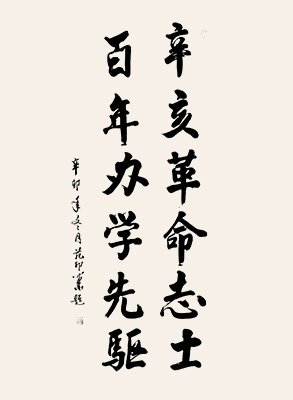 辛亥革命志士
百年办学先驱
辛卯年冬月范印篆题